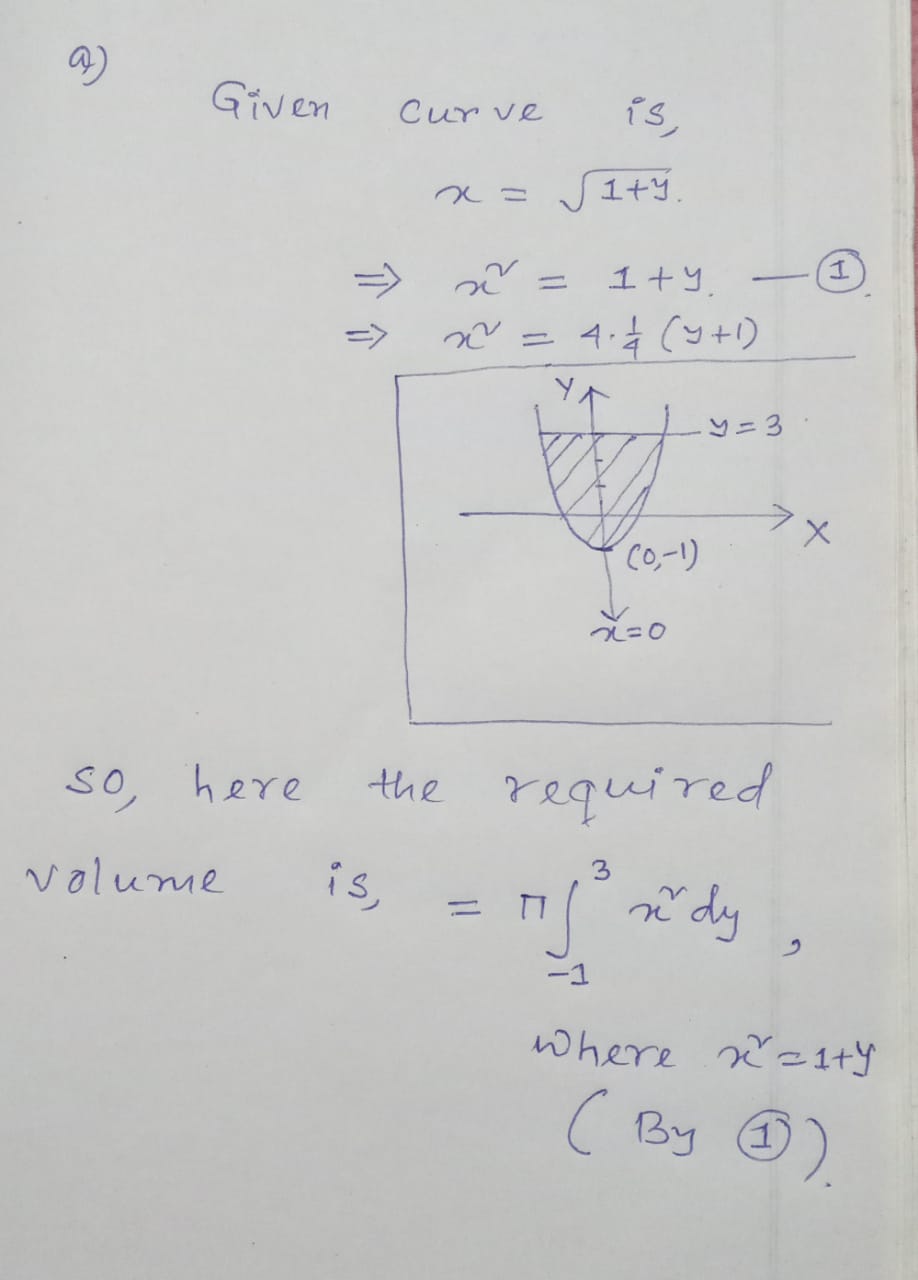 a)
Given curve is,
x = √1+y.
⇒ x² = 1+y. — ①.
⇒ x² = 4·¼ (y+1)
Y
y=3
X
(0,-1)
x=0
so, here the required
volume is, = π∫₋₁³ x² dy ,
where x²=1+y
( By ①).